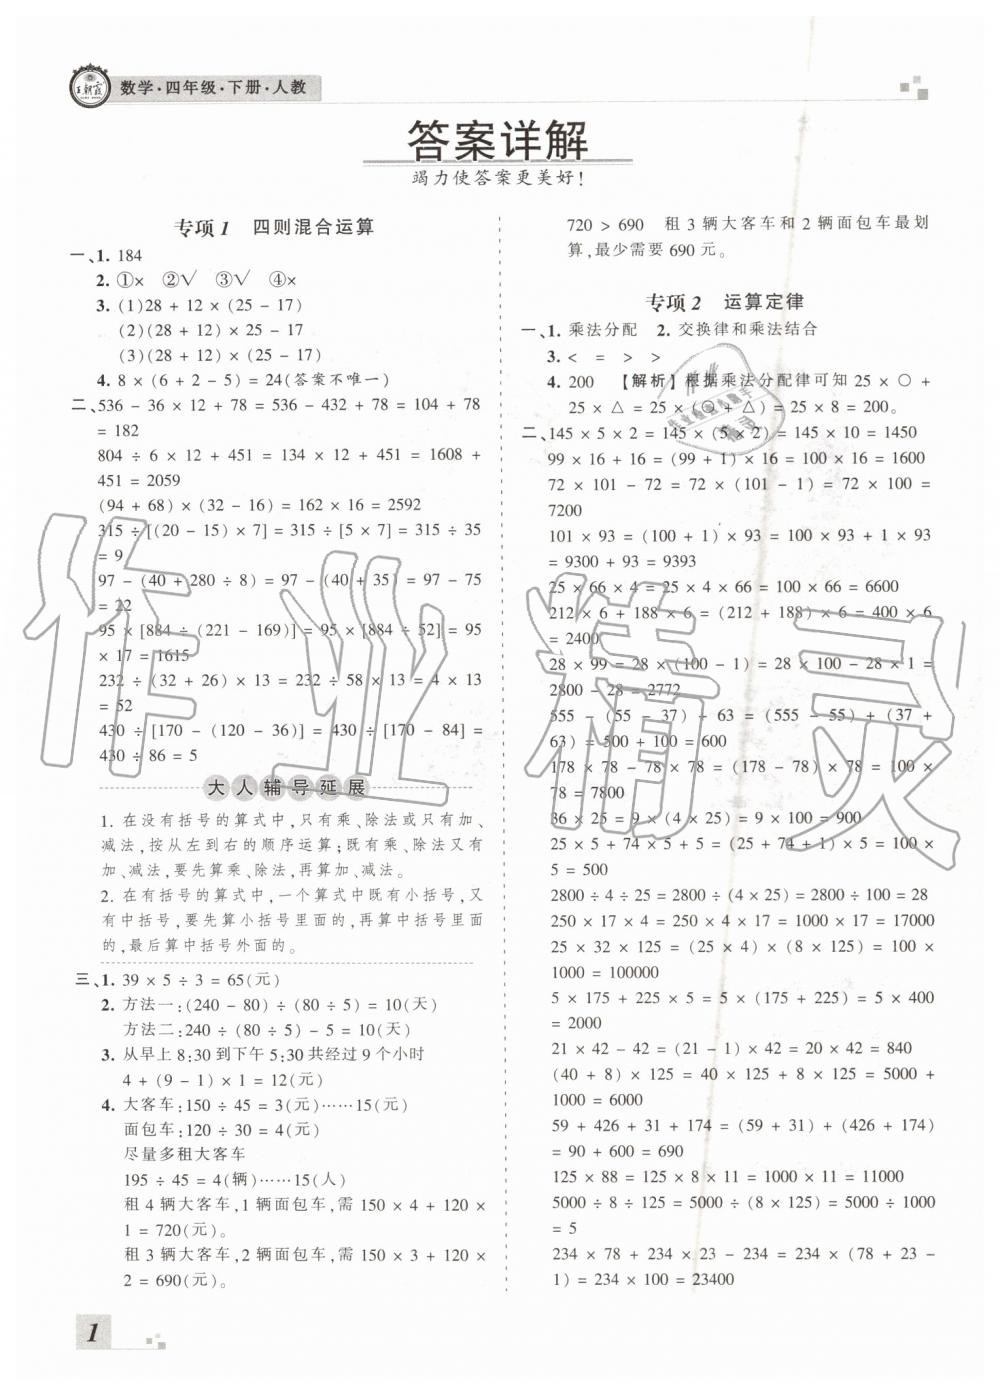 王朝霞
数学·四年级·下册·人教
答案详解
竭力使答案更美好!
专项1 四则混合运算
一、1. 184
2. ①× ②√ ③√ ④×
3. (1)28 + 12 × (25 - 17)
(2)(28 + 12) × 25 - 17
(3)(28 + 12) × (25 - 17)
4. 8 × (6 + 2 - 5) = 24(答案不唯一)
二、536 - 36 × 12 + 78 = 536 - 432 + 78 = 104 + 78
= 182
804 ÷ 6 × 12 + 451 = 134 × 12 + 451 = 1608 +
451 = 2059
(94 + 68) × (32 - 16) = 162 × 16 = 2592
315 ÷ [(20 - 15) × 7] = 315 ÷ [5 × 7] = 315 ÷ 35
= 9
97 - (40 + 280 ÷ 8) = 97 - (40 + 35) = 97 - 75
= 22
95 × [884 ÷ (221 - 169)] = 95 × [884 ÷ 52] = 95
× 17 = 1615
232 ÷ (32 + 26) × 13 = 232 ÷ 58 × 13 = 4 × 13
= 52
430 ÷ [170 - (120 - 36)] = 430 ÷ [170 - 84] =
430 ÷ 86 = 5
大人辅导延展
1. 在没有括号的算式中,只有乘、除法或只有加、
减法,按从左到右的顺序运算;既有乘、除法又有
加、减法,要先算乘、除法,再算加、减法。
2. 在有括号的算式中,一个算式中既有小括号,又
有中括号,要先算小括号里面的,再算中括号里面
的,最后算中括号外面的。
三、1. 39 × 5 ÷ 3 = 65(元)
2. 方法一:(240 - 80) ÷ (80 ÷ 5) = 10(天)
方法二:240 ÷ (80 ÷ 5) - 5 = 10(天)
3. 从早上 8:30 到下午 5:30 共经过 9 个小时
4 + (9 - 1) × 1 = 12(元)
4. 大客车:150 ÷ 45 = 3(元)……15(元)
面包车:120 ÷ 30 = 4(元)
尽量多租大客车
195 ÷ 45 = 4(辆)……15(人)
租 4 辆大客车,1 辆面包车,需 150 × 4 + 120 ×
1 = 720(元)。
租 3 辆大客车,2 辆面包车,需 150 × 3 + 120 ×
2 = 690(元)。
720 > 690 租 3 辆大客车和 2 辆面包车最划
算,最少需要 690 元。
专项2 运算定律
一、1. 乘法分配 2. 交换律和乘法结合
3. < = > >
4. 200 【解析】根据乘法分配律可知 25 × ○ +
25 × △ = 25 × (○ + △) = 25 × 8 = 200。
二、145 × 5 × 2 = 145 × (5 × 2) = 145 × 10 = 1450
99 × 16 + 16 = (99 + 1) × 16 = 100 × 16 = 1600
72 × 101 - 72 = 72 × (101 - 1) = 72 × 100 =
7200
101 × 93 = (100 + 1) × 93 = 100 × 93 + 1 × 93
= 9300 + 93 = 9393
25 × 66 × 4 = 25 × 4 × 66 = 100 × 66 = 6600
212 × 6 + 188 × 6 = (212 + 188) × 6 = 400 × 6
= 2400
28 × 99 = 28 × (100 - 1) = 28 × 100 - 28 × 1 =
2800 - 28 = 2772
555 - (55 - 37) + 63 = (555 - 55) + (37 +
63) = 500 + 100 = 600
178 × 78 - 78 × 78 = (178 - 78) × 78 = 100 ×
78 = 7800
36 × 25 = 9 × (4 × 25) = 9 × 100 = 900
25 × 5 + 74 × 5 + 5 = (25 + 74 + 1) × 5 = 100
× 5 = 500
2800 ÷ 4 ÷ 25 = 2800 ÷ (4 × 25) = 2800 ÷ 100 = 28
250 × 17 × 4 = 250 × 4 × 17 = 1000 × 17 = 17000
25 × 32 × 125 = (25 × 4) × (8 × 125) = 100 ×
1000 = 100000
5 × 175 + 225 × 5 = 5 × (175 + 225) = 5 × 400
= 2000
21 × 42 - 42 = (21 - 1) × 42 = 20 × 42 = 840
(40 + 8) × 125 = 40 × 125 + 8 × 125 = 5000 +
1000 = 6000
59 + 426 + 31 + 174 = (59 + 31) + (426 + 174)
= 90 + 600 = 690
125 × 88 = 125 × 8 × 11 = 1000 × 11 = 11000
5000 ÷ 8 ÷ 125 = 5000 ÷ (8 × 125) = 5000 ÷ 1000
= 5
234 × 78 + 234 × 23 - 234 = 234 × (78 + 23 -
1) = 234 × 100 = 23400
1
作业精灵